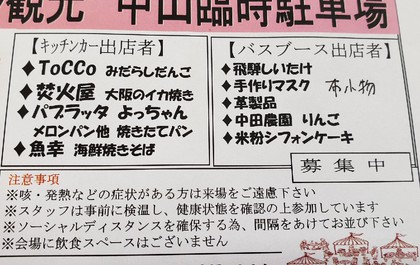 観光 中山臨時駐車場
【キッチンカー出店者】
◆ToCCo みだらしだんご
◆焚火屋 大阪のイカ焼き
◆パブラッタ よっちゃん
メロンパン他 焼きたてパン
◆魚幸 海鮮焼きそば
【バスブース出店者】
◆飛騨しいたけ
◆手作りマスク 布小物
◆革製品
◆中田農園 りんご
◆米粉シフォンケーキ
募集中
注意事項
※咳・発熱などの症状がある方は来場をご遠慮下さい
※スタッフは事前に検温し、健康状態を確認の上参加しています
※ソーシャルディスタンスを確保する為、間隔をあけてお並び下さい
※会場に飲食スペースはございません